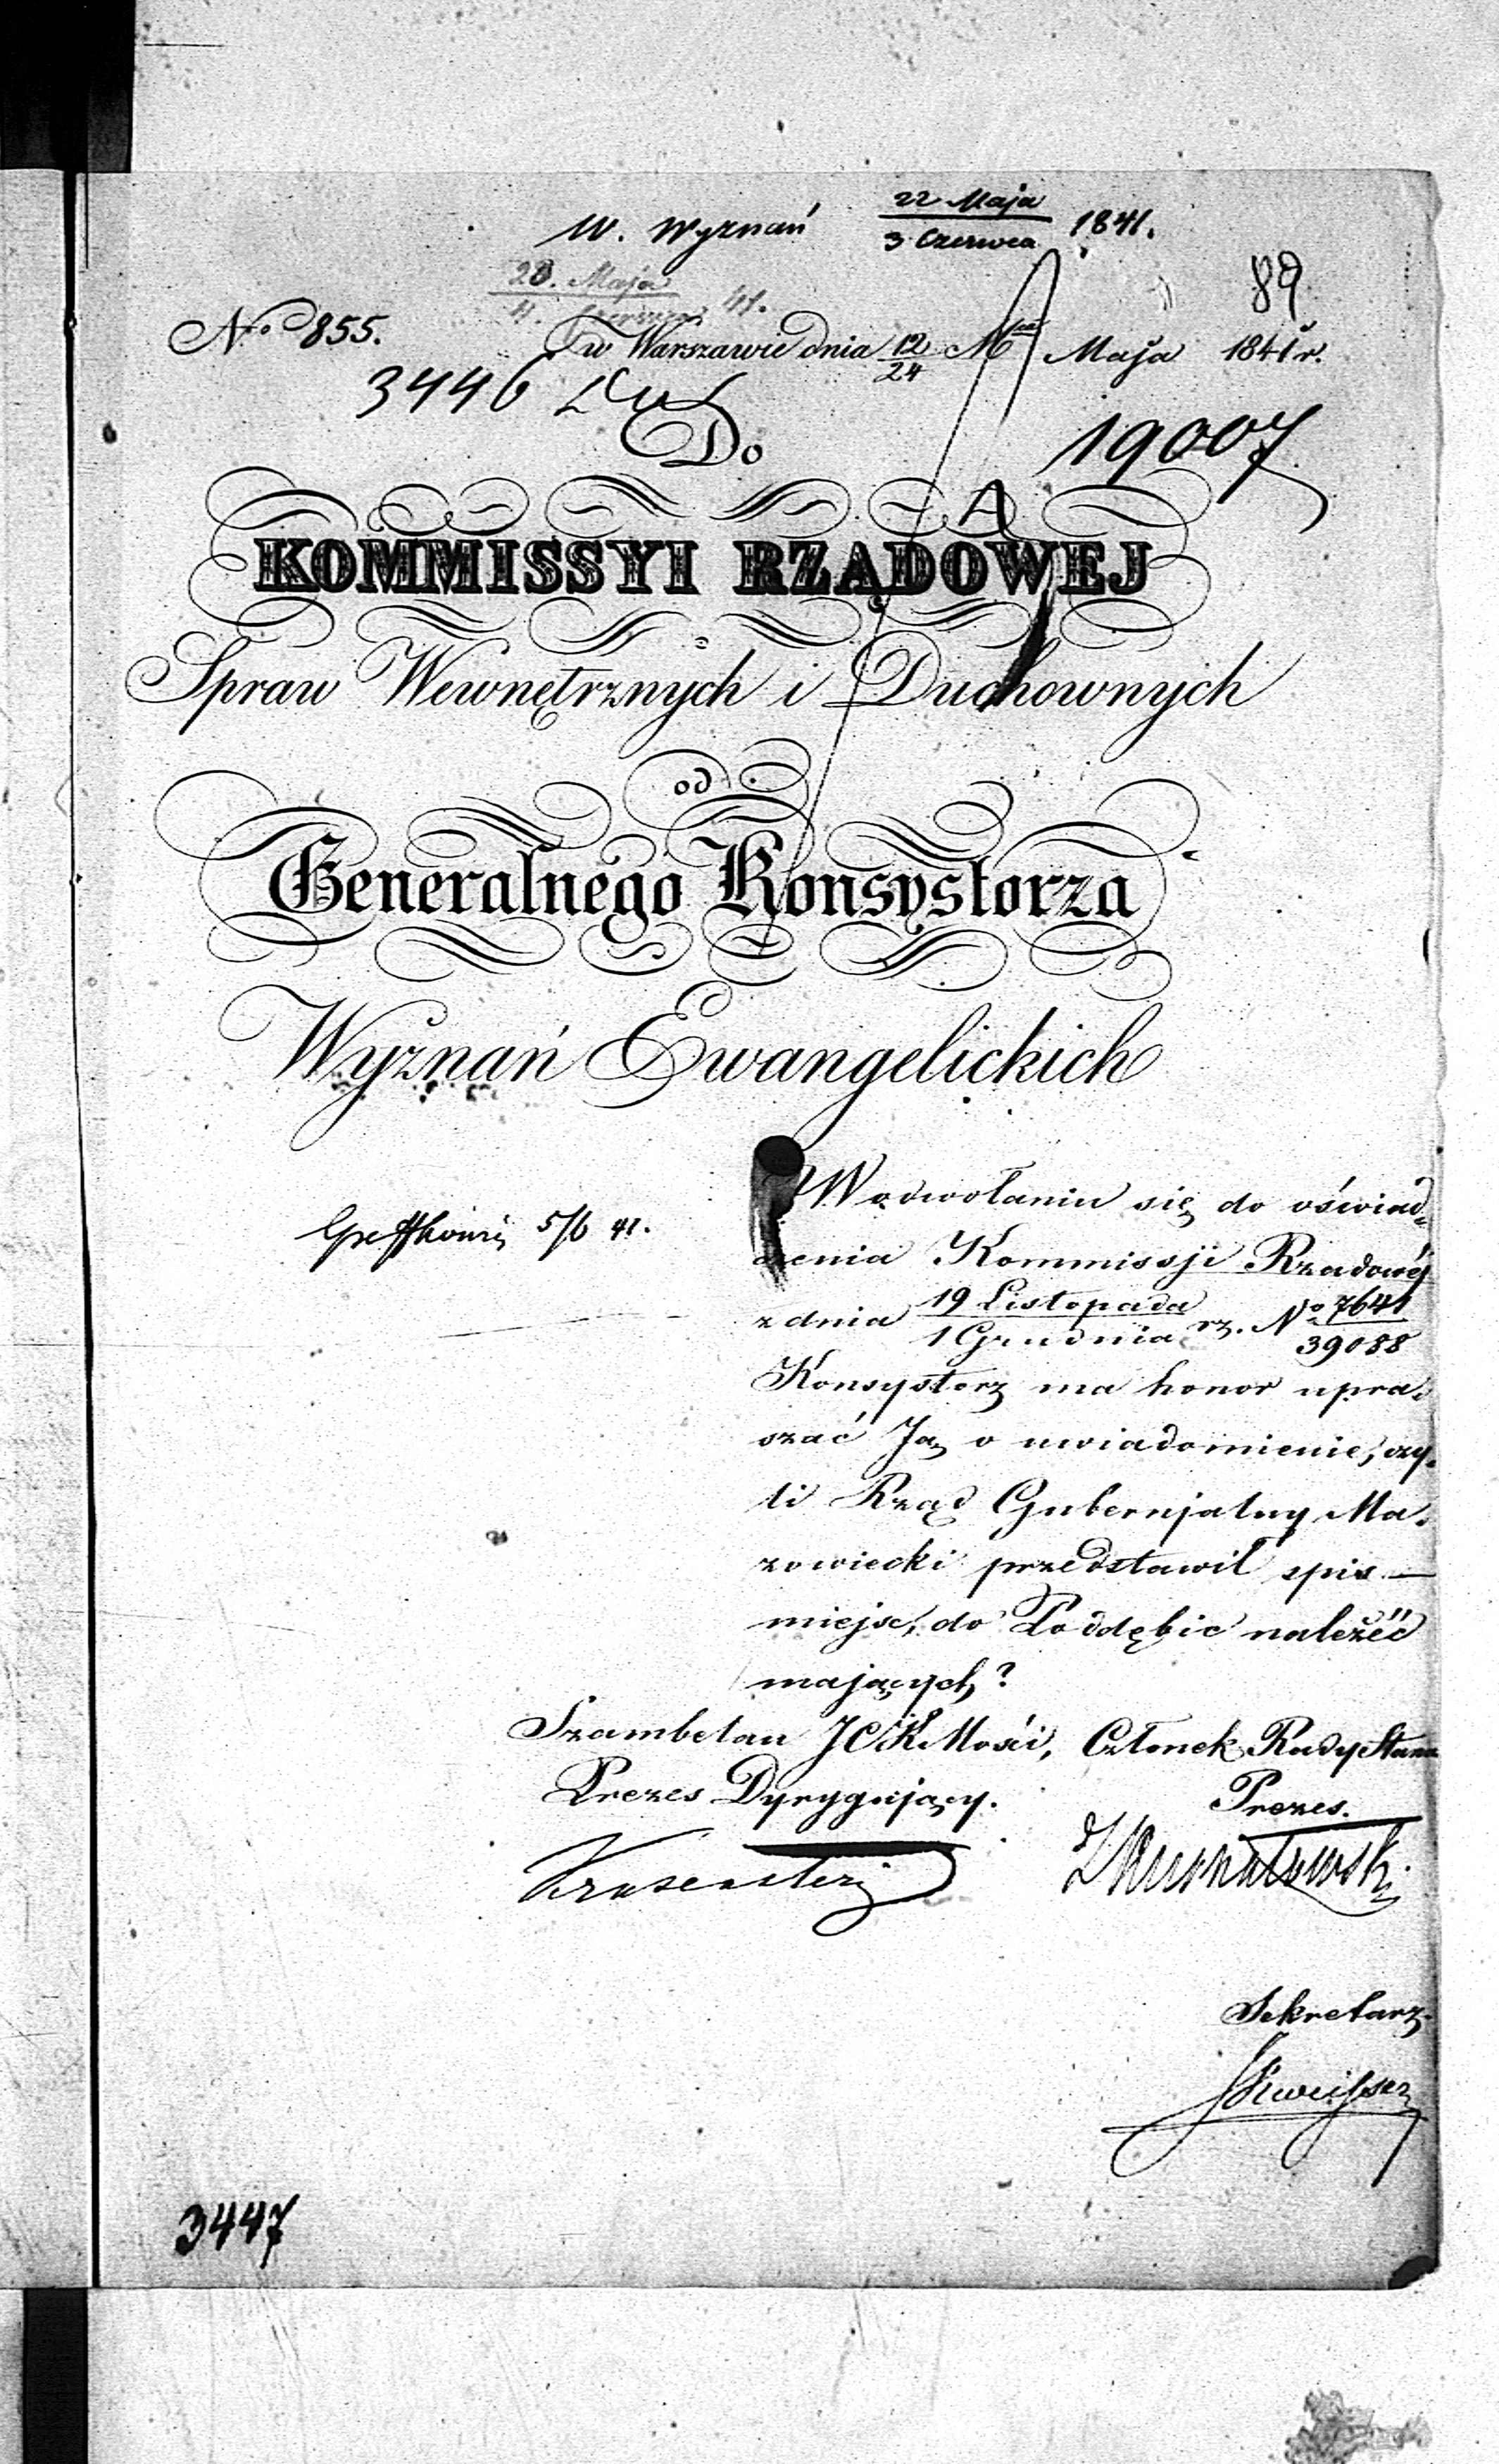 W. Wyznań 22 Maja / 3 Czerwca 1841.
89
20. Maja / 41.
No 855. w Warszawie dnia 12/24 Mca Maja 1841 r.
3446
Do 19007
KOMMISSYI RZĄDOWEJ
Spraw Wewnętrznych i Duchownych
od
Generalnego Konsystorza
Wyznań Ewangelickich
W odwołaniu się do oświad-
czenia Kommissji Rządowéj
5/6 41.
z dnia 19 Listopada / 1 Grudnia rz. No 7641 / 39088
Konsystorz ma honor upra-
szać Ją o uwiadomienie, czy-
li Rząd Gubernjalny Ma-
zowiecki przedstawił spis
miejsc, do Poddębic należéć
mających?
Szambelan JCKMości, Członek Rady Stanu
Prezes Dyrygujący. Prezes.
Sekretarz
3447